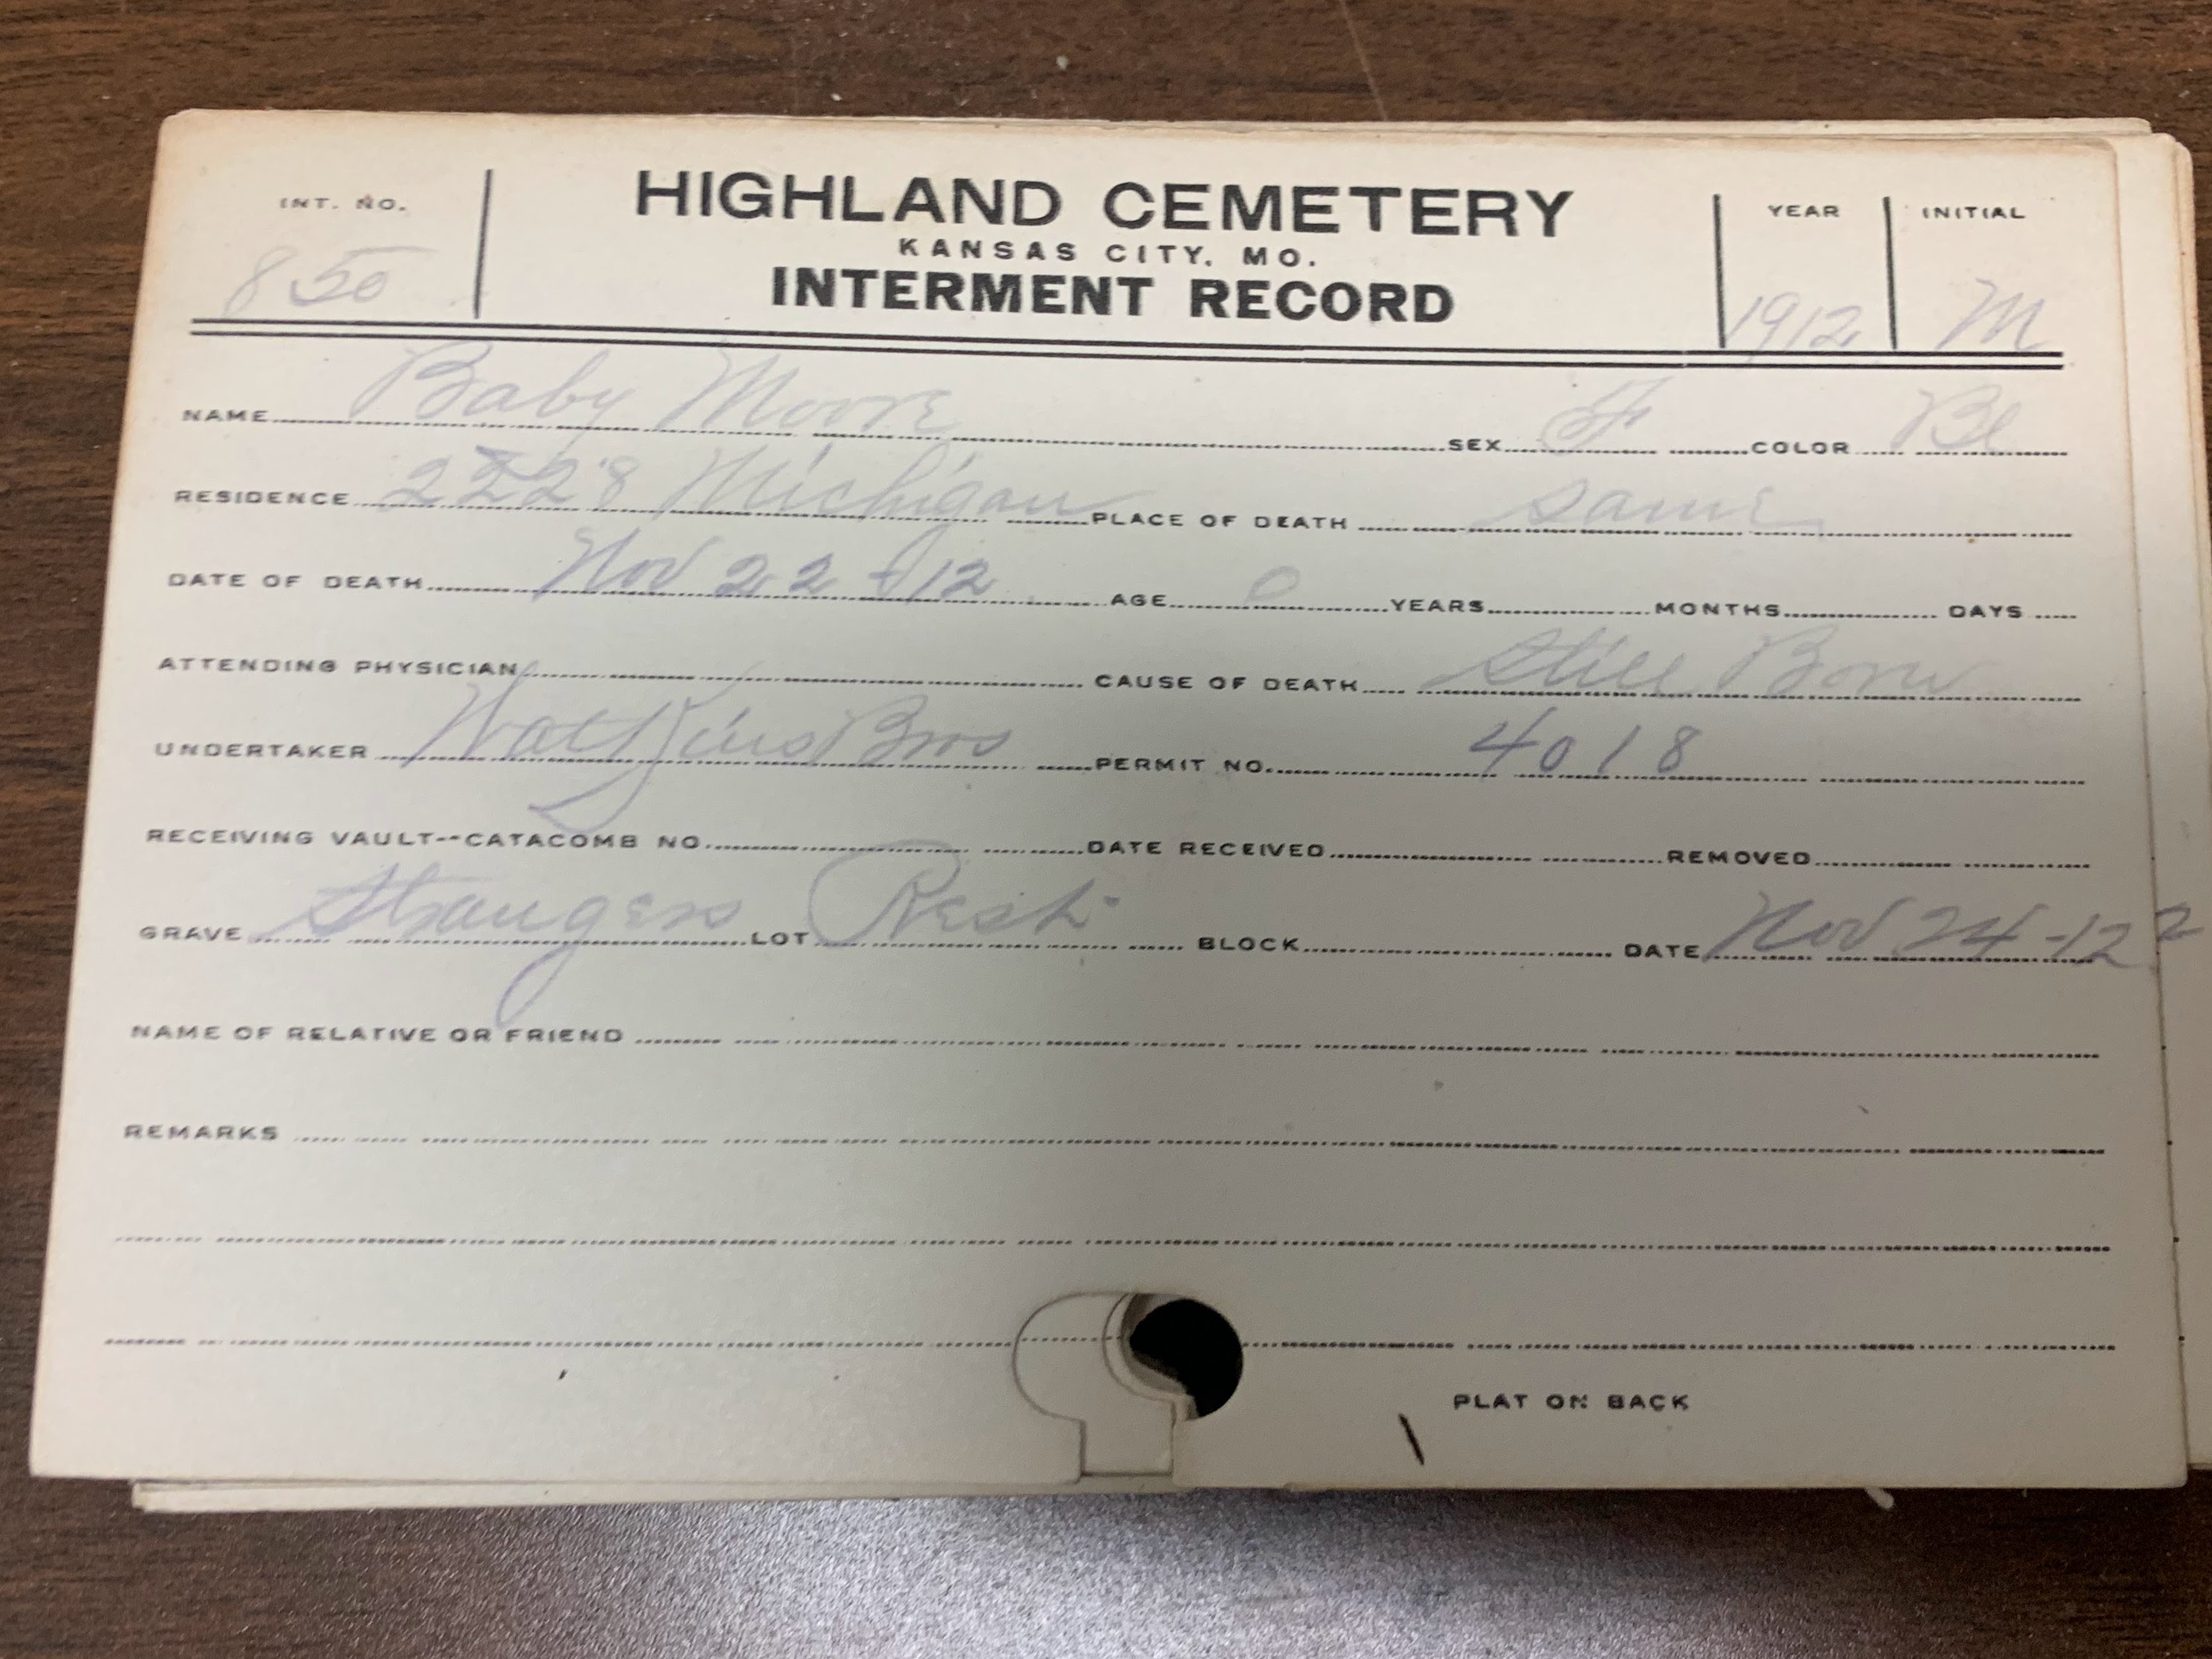 INT. NO. 850
HIGHLAND CEMETERY
KANSAS CITY, MO.
INTERMENT RECORD
YEAR 1912
INITIAL M
NAME Baby Moore SEX F COLOR Bl
RESIDENCE 2228 Michigan PLACE OF DEATH same
DATE OF DEATH Nov 22-12 AGE 0 YEARS MONTHS DAYS
ATTENDING PHYSICIAN CAUSE OF DEATH Still Born
UNDERTAKER Watkins Bros PERMIT NO. 4018
RECEIVING VAULT--CATACOMB NO. DATE RECEIVED REMOVED
GRAVE Strangers LOT Rest BLOCK DATE Nov 24-12
NAME OF RELATIVE OR FRIEND
REMARKS
PLAT ON BACK